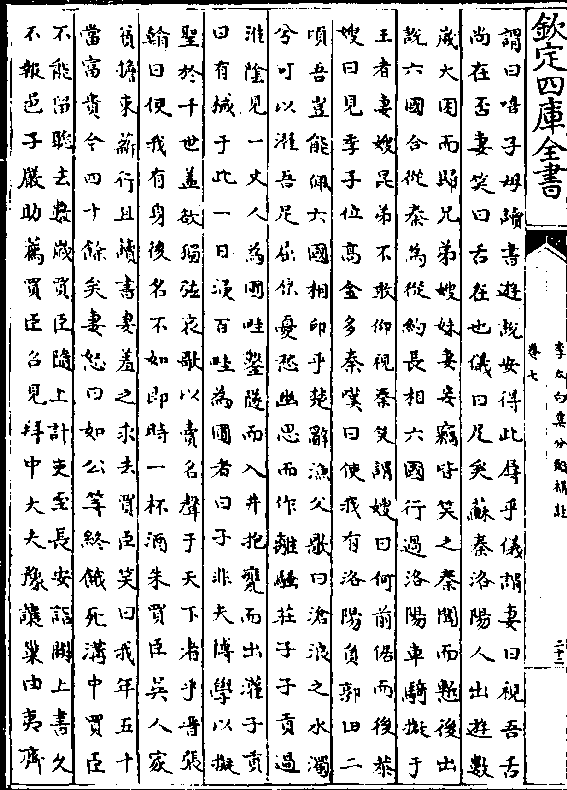 欽定四庫全書
李太白集分類補註
卷七
二十二
謂曰嘻子毋讀書遊説安得此辱乎儀謂妻曰視吾舌
尚在否妻笑曰舌在也儀曰足矣蘇秦洛陽人出遊數
嵗大困而歸兄弟嫂妹妻妾竊皆笑之秦聞而慙後出
説六國合從秦為從約長相六國行過洛陽車騎擬于
王者妻嫂昆弟不敢仰視秦笑謂嫂曰何前倨而後恭
嫂曰見季子位高金多秦嘆曰使我有洛陽負郭田二
頃吾豈能佩六國相印乎楚辭漁父歌曰滄浪之水濁
兮可以濯吾足屈原憂愁幽思而作離騷莊子子貢過
淮陰見一丈人為圃畦鑿隧而入井抱甕而出灌子貢
曰有械于此一日浸百畦為圃者曰子非夫博學以擬
聖於千世蓋欲獨弦哀歌以賣名聲于天下者乎晉張
翰曰使我有身後名不如即時一杯酒朱買臣吳人家
負擔束薪行且讀書妻羞之求去買臣笑曰我年五十
當富貴今四十餘矣妻恕曰如公等終餓死溝中買臣
不能留聽去數嵗買臣隨上計吏至長安詣闕上書久
不報邑子嚴助薦買臣召見拜中大夫豫讓巢由夷齊